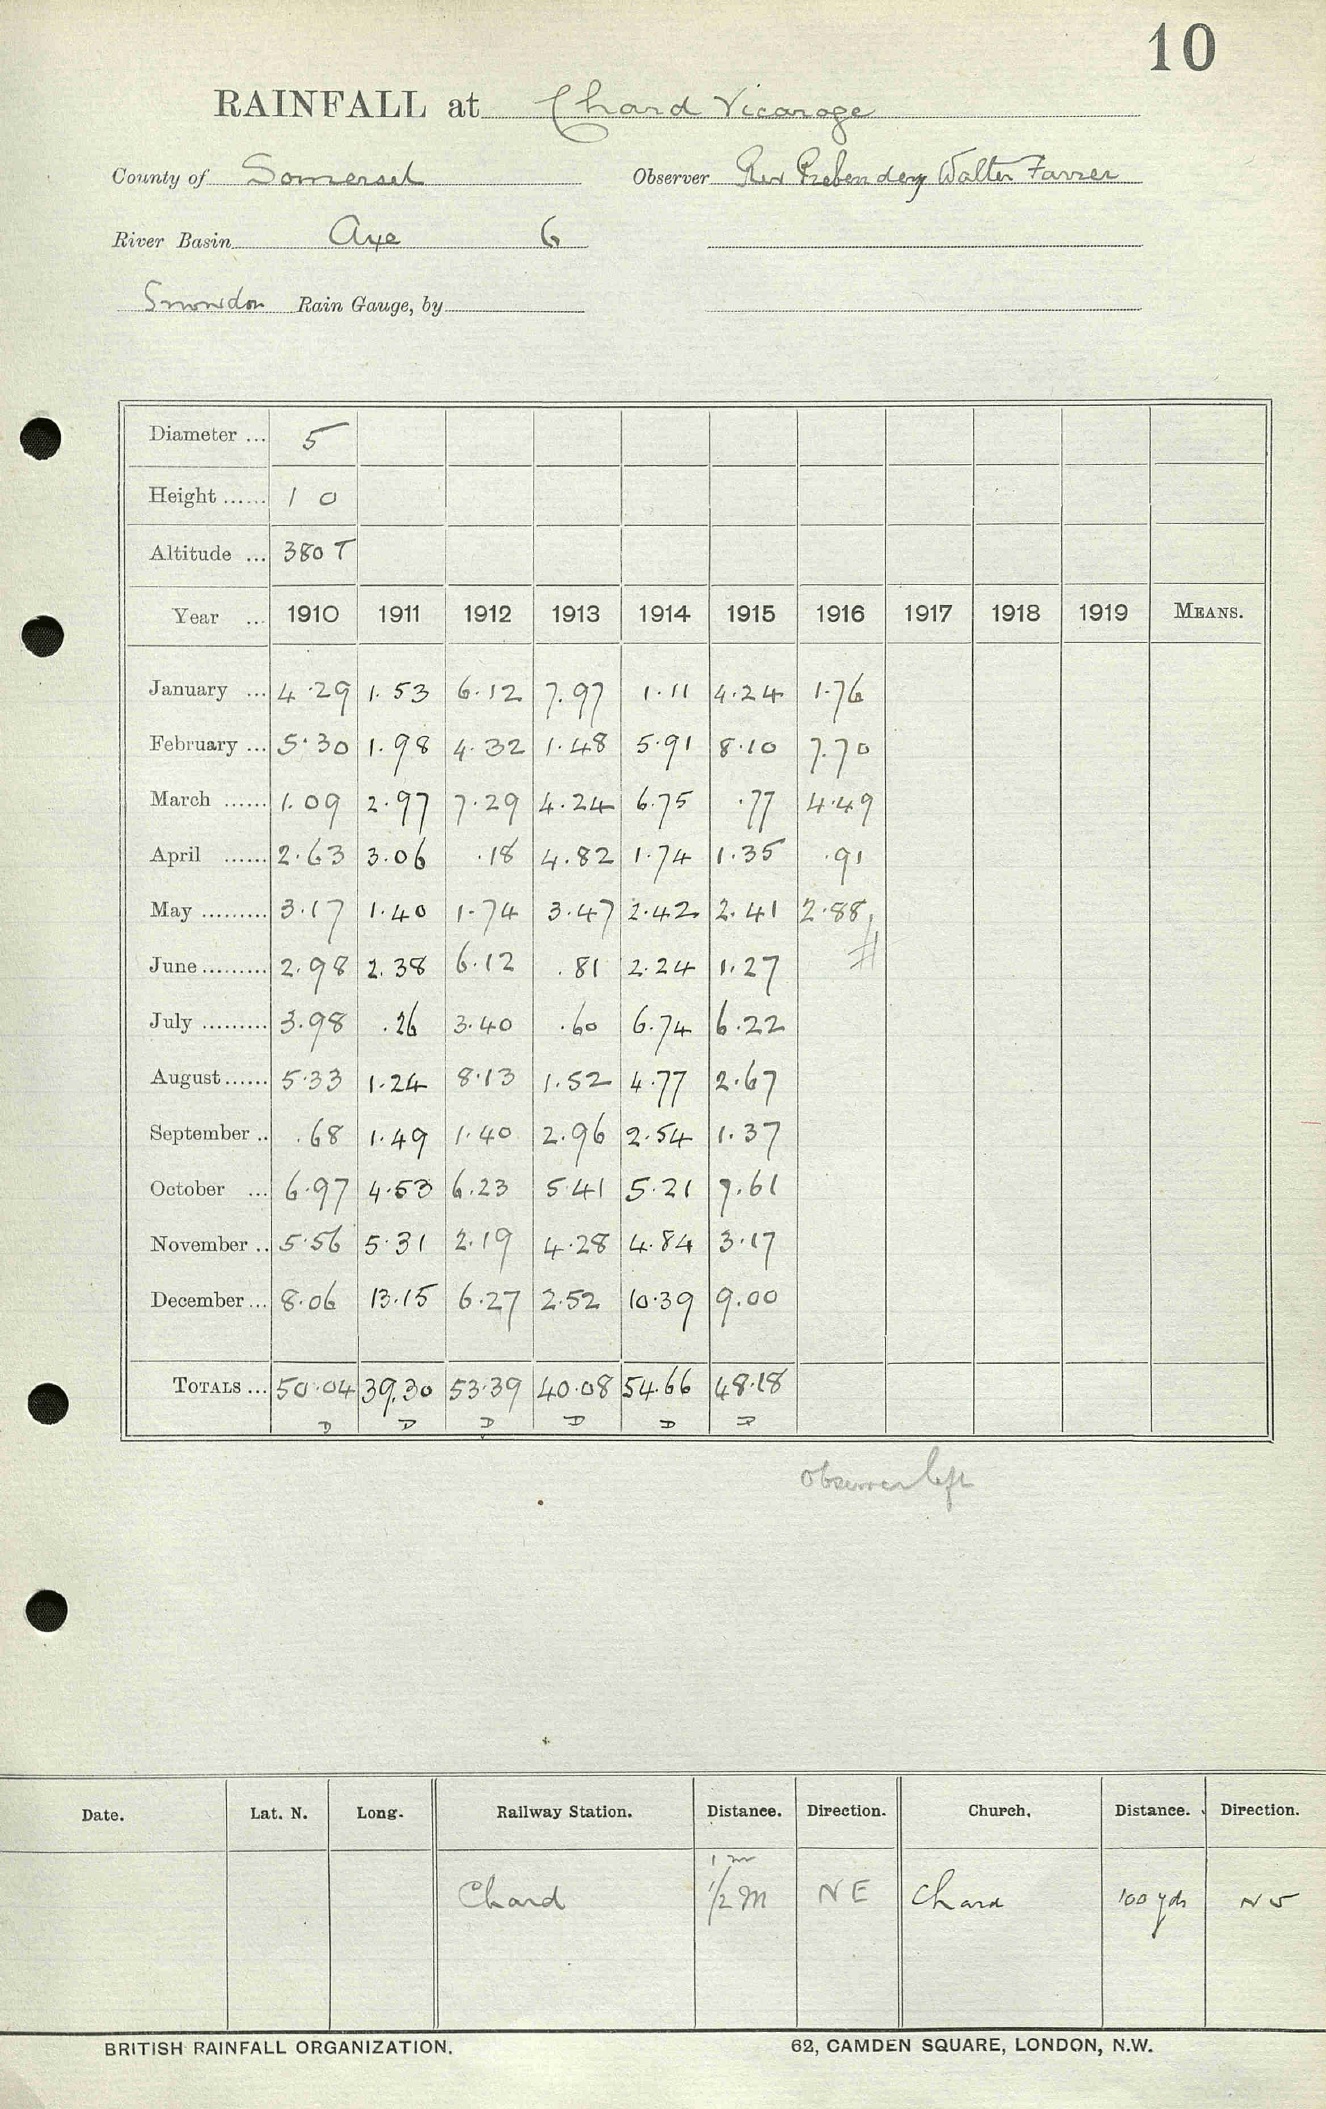 10
RAINFALL at Chard Vicarage
County of Somerset Observer Rev Prebendary Walter Farrer
River Basin Axe 6
Snowdon Rain Gauge, by
Diameter ... 5
Height ...... 1 0
Altitude ... 380 T
Year ... 1910 1911 1912 1913 1914 1915 1916 1917 1918 1919 MEANS.
January ... 4.29 1.53 6.12 7.97 1.11 4.24 1.76
February ... 5.30 1.98 4.32 1.48 5.91 8.10 7.70
March ...... 1.09 2.97 7.29 4.24 6.75 .77 4.49
April ...... 2.63 3.06 .18 4.82 1.74 1.35 .91
May ......... 3.17 1.40 1.74 3.47 2.42 2.41 2.88
June ......... 2.98 2.38 6.12 .81 2.24 1.27
July ......... 3.98 .26 3.40 .60 6.74 6.22
August ...... 5.33 1.24 8.13 1.52 4.77 2.67
September .. .68 1.49 1.40 2.96 2.54 1.37
October ... 6.97 4.53 6.23 5.41 5.21 7.61
November .. 5.56 5.31 2.19 4.28 4.84 3.17
December ... 8.06 13.15 6.27 2.52 10.39 9.00
TOTALS ... 50.04 39.30 53.39 40.08 54.66 48.18
D D D D D D
Observer left
Date. Lat. N. Long. Railway Station. Distance. Direction. Church. Distance. Direction.
1 m
Chard 1/2 M NE Chard 100 yds
BRITISH RAINFALL ORGANIZATION. 62, CAMDEN SQUARE, LONDON, N.W.